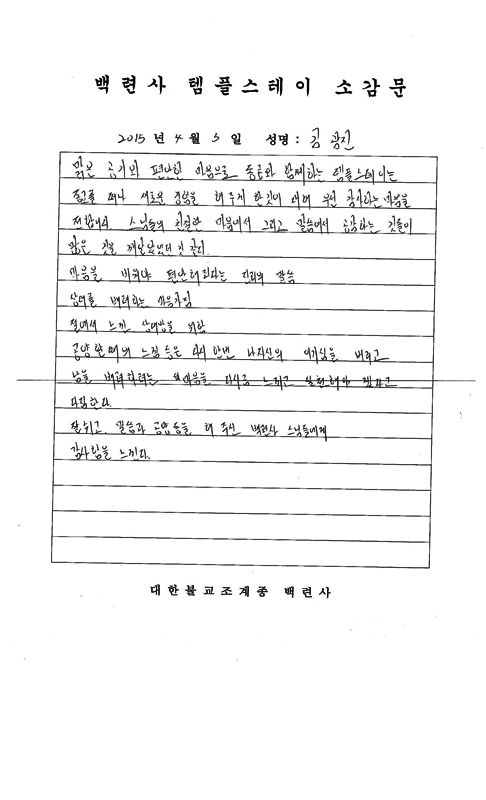 백련사 템플스테이 소감문
2015년 4월 5일 성명: 김광진
맑은 공기와 편안한 마음으로 동료와 함께하는 템플스테이는
종교를 떠나 새로운 경험을 해주게 한것에 대해 우선 감사하는 마음을
전합니다. 스님들의 친절한 마음에서 그리고 말씀에서 공감하는 것들이
많은 것을 깨달았었던 것 같다.
마음을 비워야 편안해진다는 진리의 말씀
상대를 배려하는 마음가짐
절에서 느낀 상대방을 위함
공양할때의 느낌 등은 다시한번 나자신의 이기심을 버리고
남을 배려하려는 마음을 다시금 느끼고 실천해야 겠다고
다짐한다.
잘쉬고, 말씀과 공양등을 해 주신 백련사 스님들에게
감사함을 느낀다.
대한불교조계종 백련사